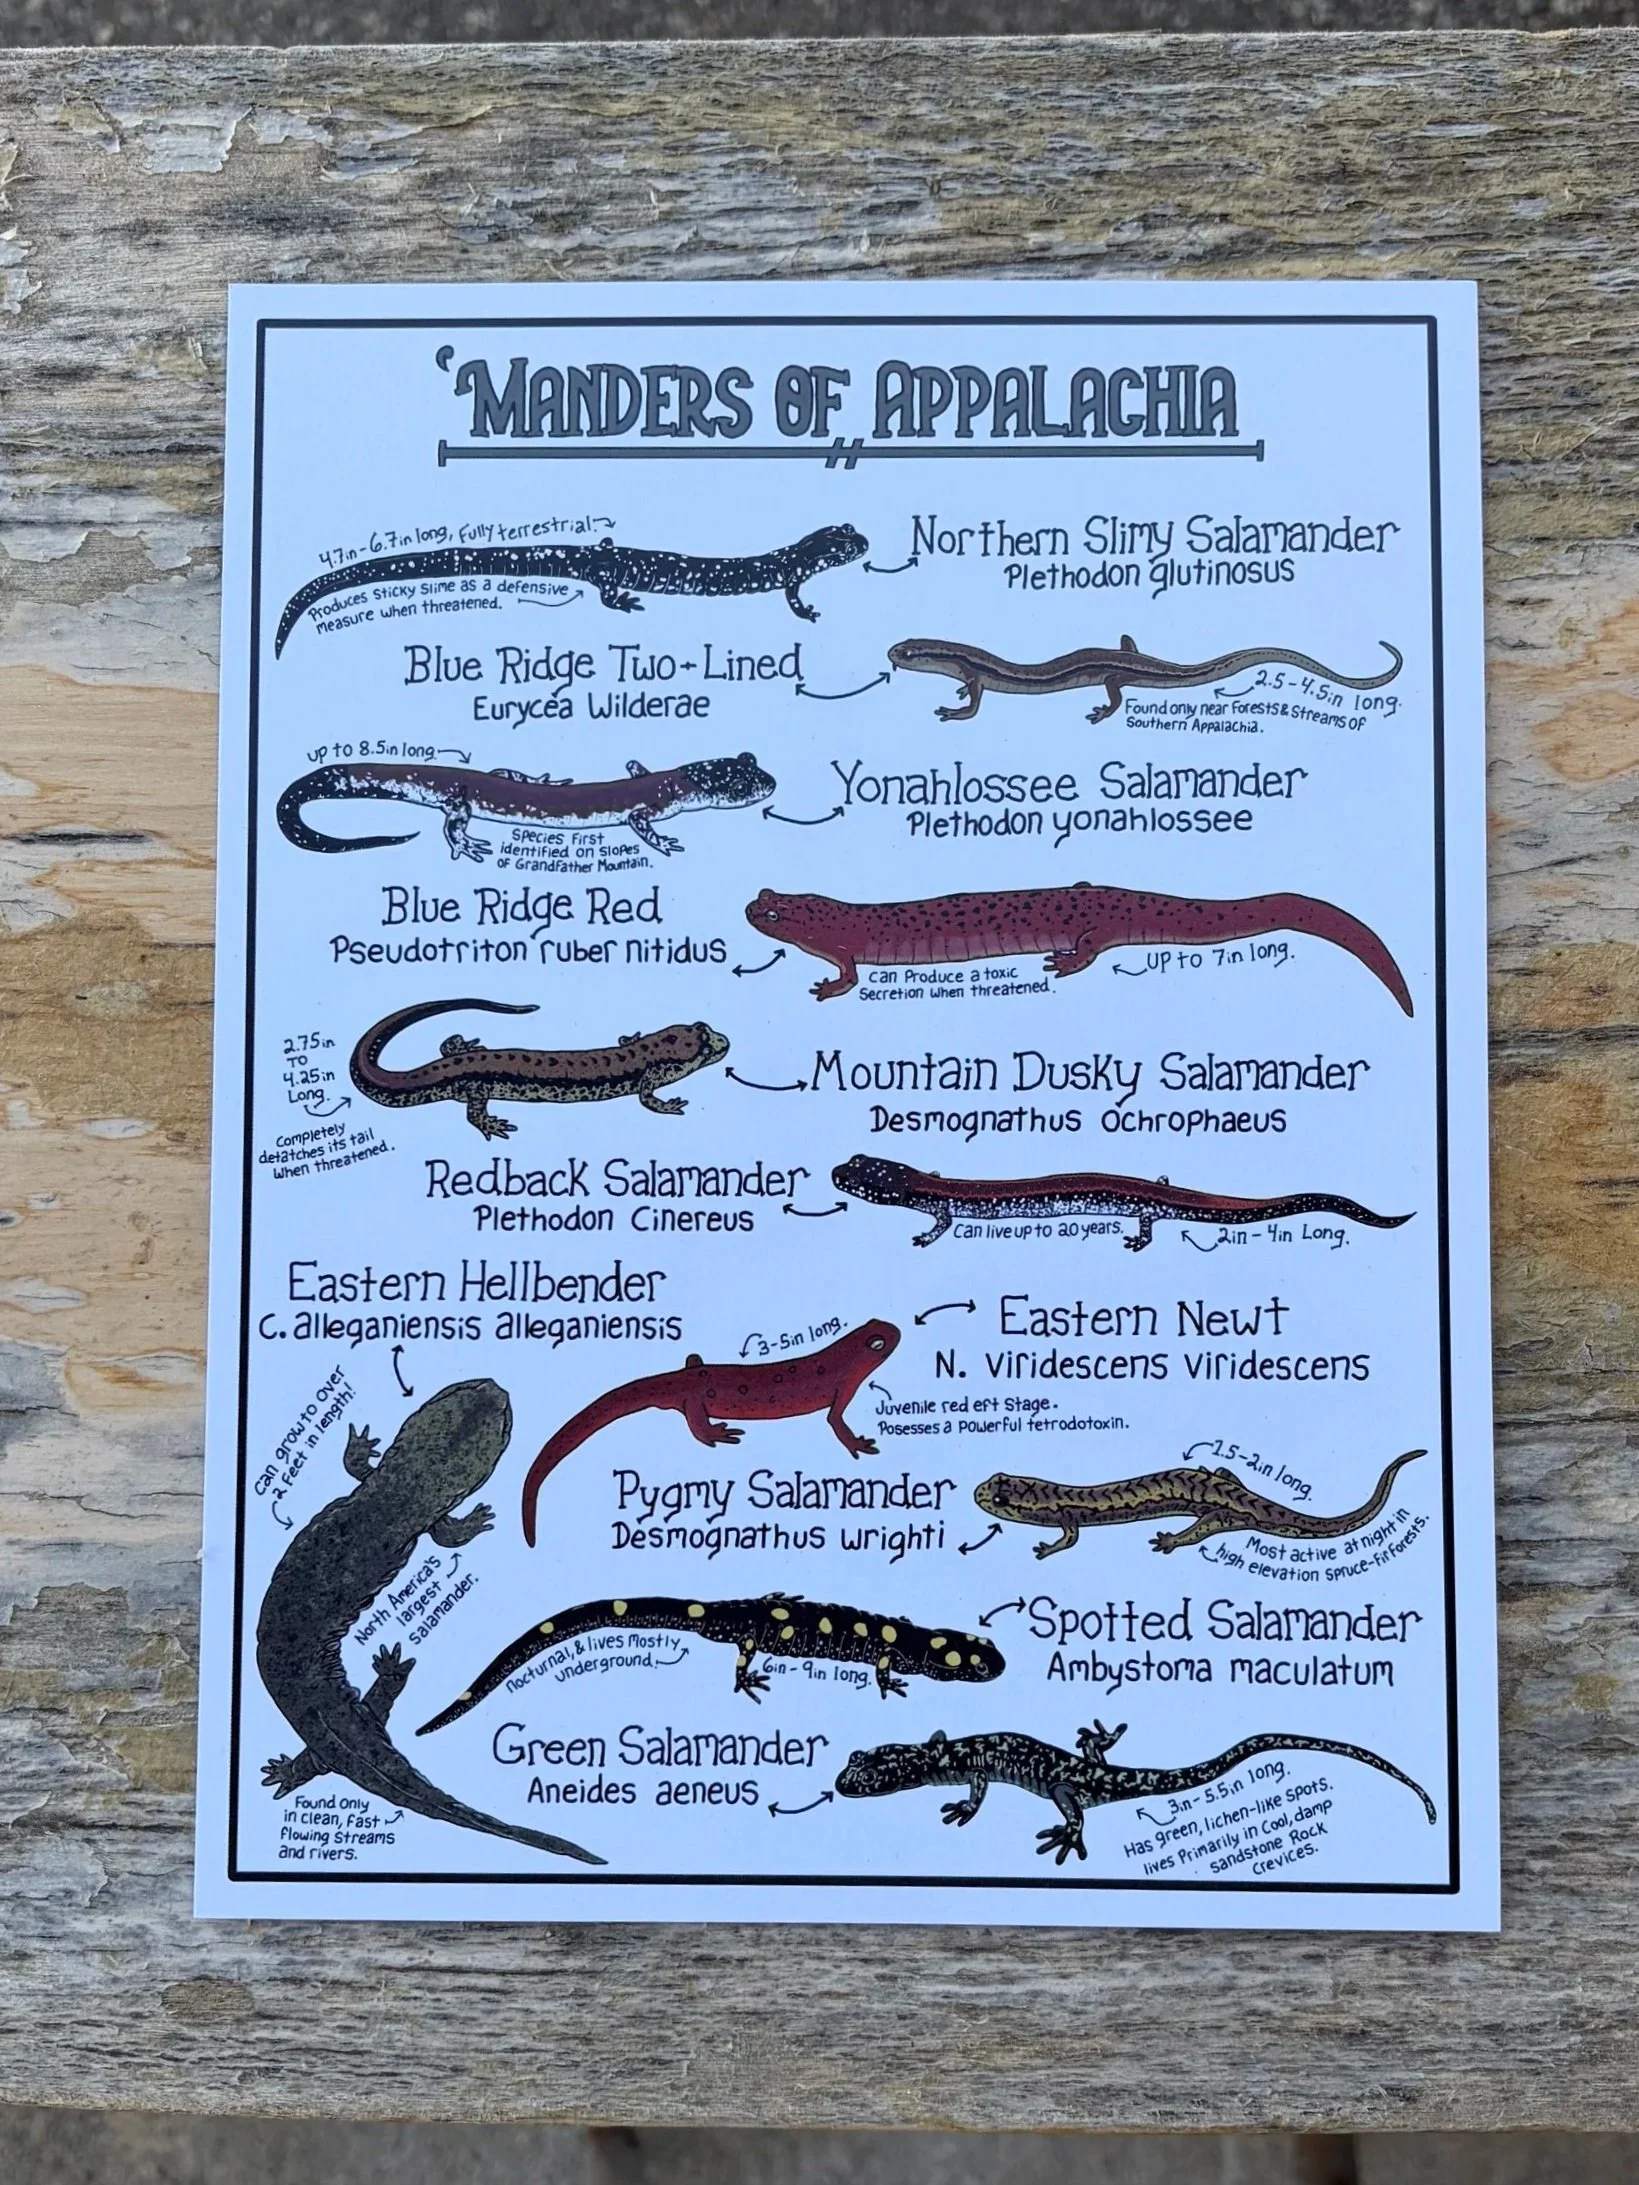 'Manders of Appalachia
4.7in-6.7in long, fully terrestrial.
Produces sticky slime as a defensive
measure when threatened.
Northern Slimy Salamander
Plethodon glutinosus
Blue Ridge Two-Lined
Eurycea Wilderae
2.5-4.5in long.
Found only near Forests & Streams of
Southern Appalachia.
up to 8.5in long.
Species First
identified on slopes
of Grandfather Mountain.
Yonahlossee Salamander
Plethodon yonahlossee
Blue Ridge Red
Pseudotriton ruber nitidus
can produce a toxic
Secretion when threatened.
up to 7in long.
2.75in
to
4.25in
Long.
Completely
detatches its tail
when threatened.
Mountain Dusky Salamander
Desmognathus ochrophaeus
Redback Salamander
Plethodon Cinereus
Can live up to 20 years.
2in-4in Long.
Eastern Hellbender
C. alleganiensis alleganiensis
Can grow to over
2 feet in length!
North America's
largest
Salamander.
Found only
in clean, fast
flowing streams
and rivers.
3-5in long.
Eastern Newt
N. viridescens viridescens
Juvenile red eft stage.
Posesses a powerful tetrodotoxin.
Pygmy Salamander
Desmognathus wrighti
1.5-2in long.
Most active at night in
high elevation spruce-fir forests.
Nocturnal, & lives mostly
underground.
6in-9in long.
Spotted Salamander
Ambystoma maculatum
Green Salamander
Aneides aeneus
3in-5.5in long.
Has green, lichen-like spots.
lives Primarily in cool, damp
sandstone Rock
crevices.